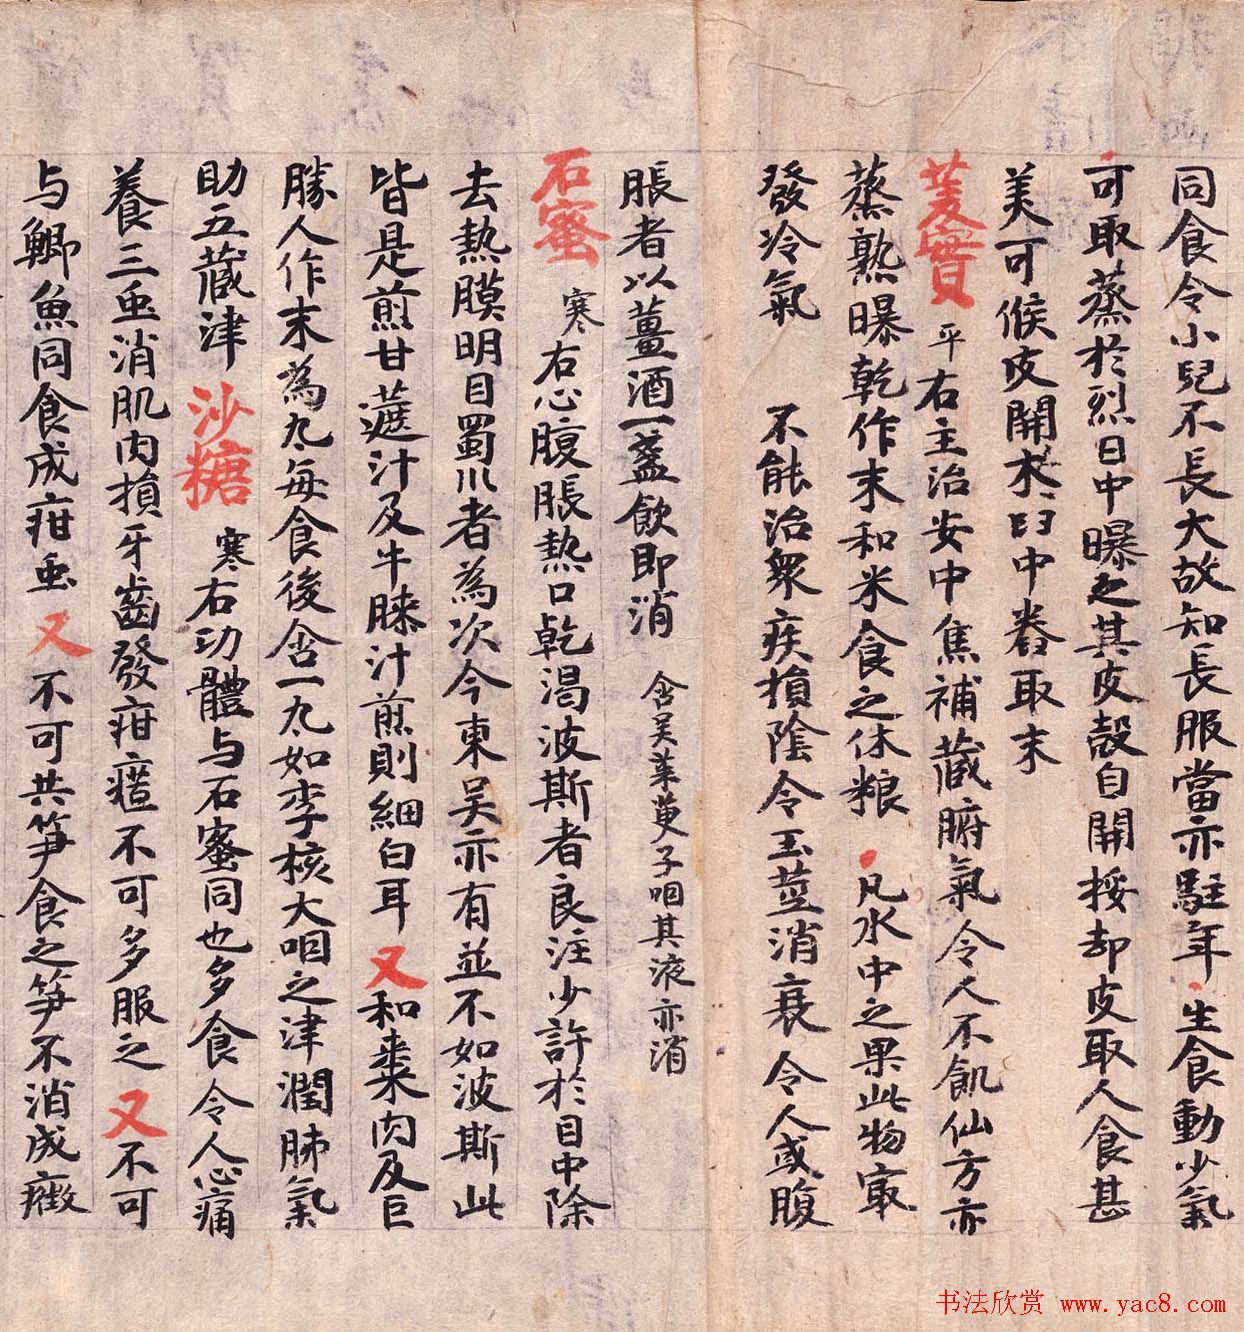 同食令小兒不長大故知長服當亦駐年生食動少氣
可取蒸於烈日中曝之其皮殼自開挼却皮取人食甚
美可候皮開木臼中舂取末
蔆實 平右主治安中焦補蔵腑氣令人不飢仙方亦
蒸熟曝乾作末和米食之休粮 凡水中之果此物寂
發冷氣 不能治衆疾損陰令玉莖消衰令人或腹
脹者以薑酒一盞飲即消 含吴茱萸子咽其液亦消
石蜜 寒右心腹脹熱口乾渴波斯者良注少許於目中除
去熱膜明目蜀川者為次今東吴亦有並不如波斯此
皆是煎甘蔗汁及牛膝汁煎則細白耳 又和棗肉及巨
勝人作末為丸每食後含一丸如李核大咽之津潤肺氣
助五蔵津 沙糖 寒右功體与石蜜同也多食令人心痛
養三虫消肌肉損牙齒發疳䘌不可多服之 又不可
与鯽魚同食成疳虫 又不可共笋食之笋不消成癥
书法欣赏 www.yac8.com